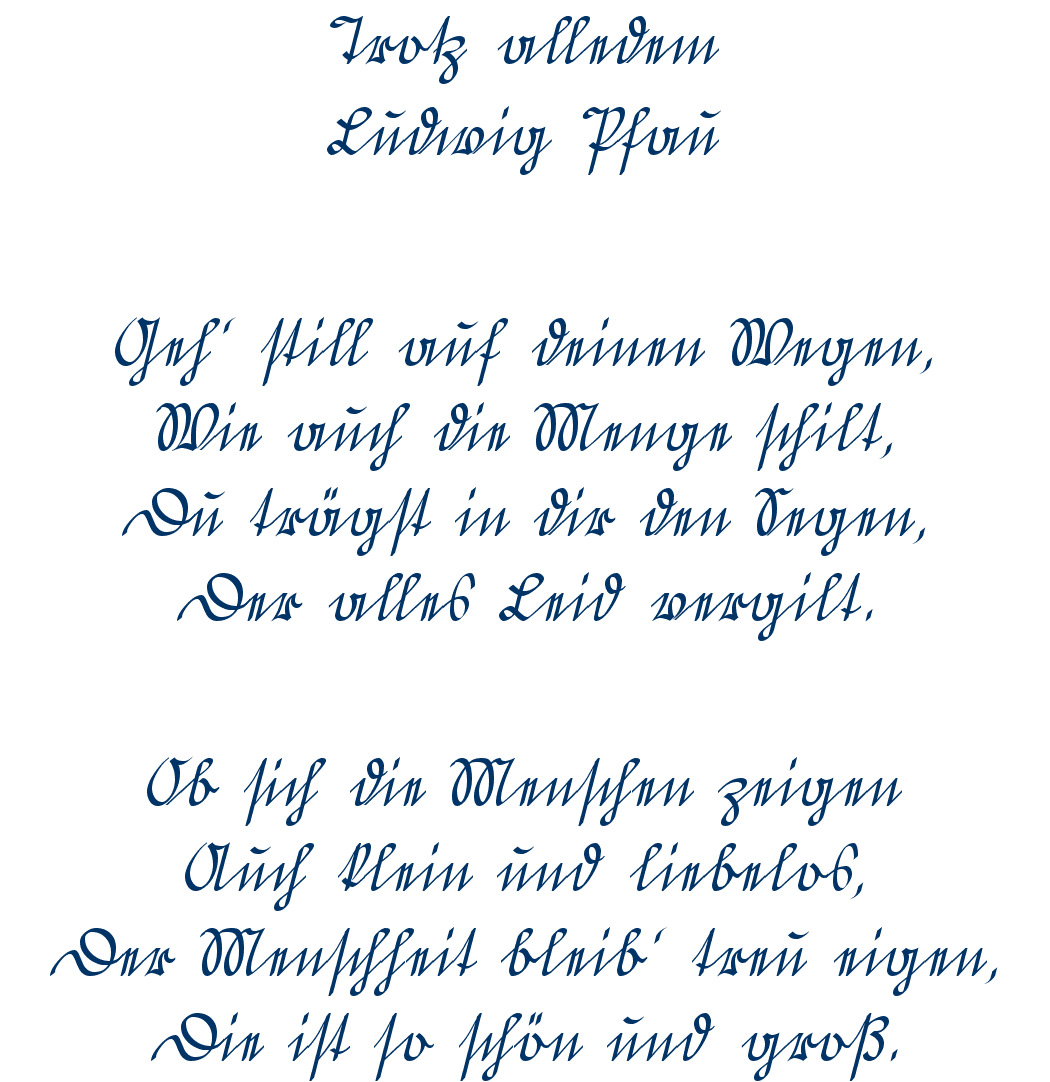 Trotz alledem
Ludwig Pfau
Geh‘ still auf deinen Wegen,
Wie auch die Menge schilt,
Du trägst in dir den Segen,
Der alles Leid vergilt.
Ob sich die Menschen zeigen
Auch klein und liebelos,
Der Menschheit bleib‘ treu eigen,
Die ist so schön und groß.